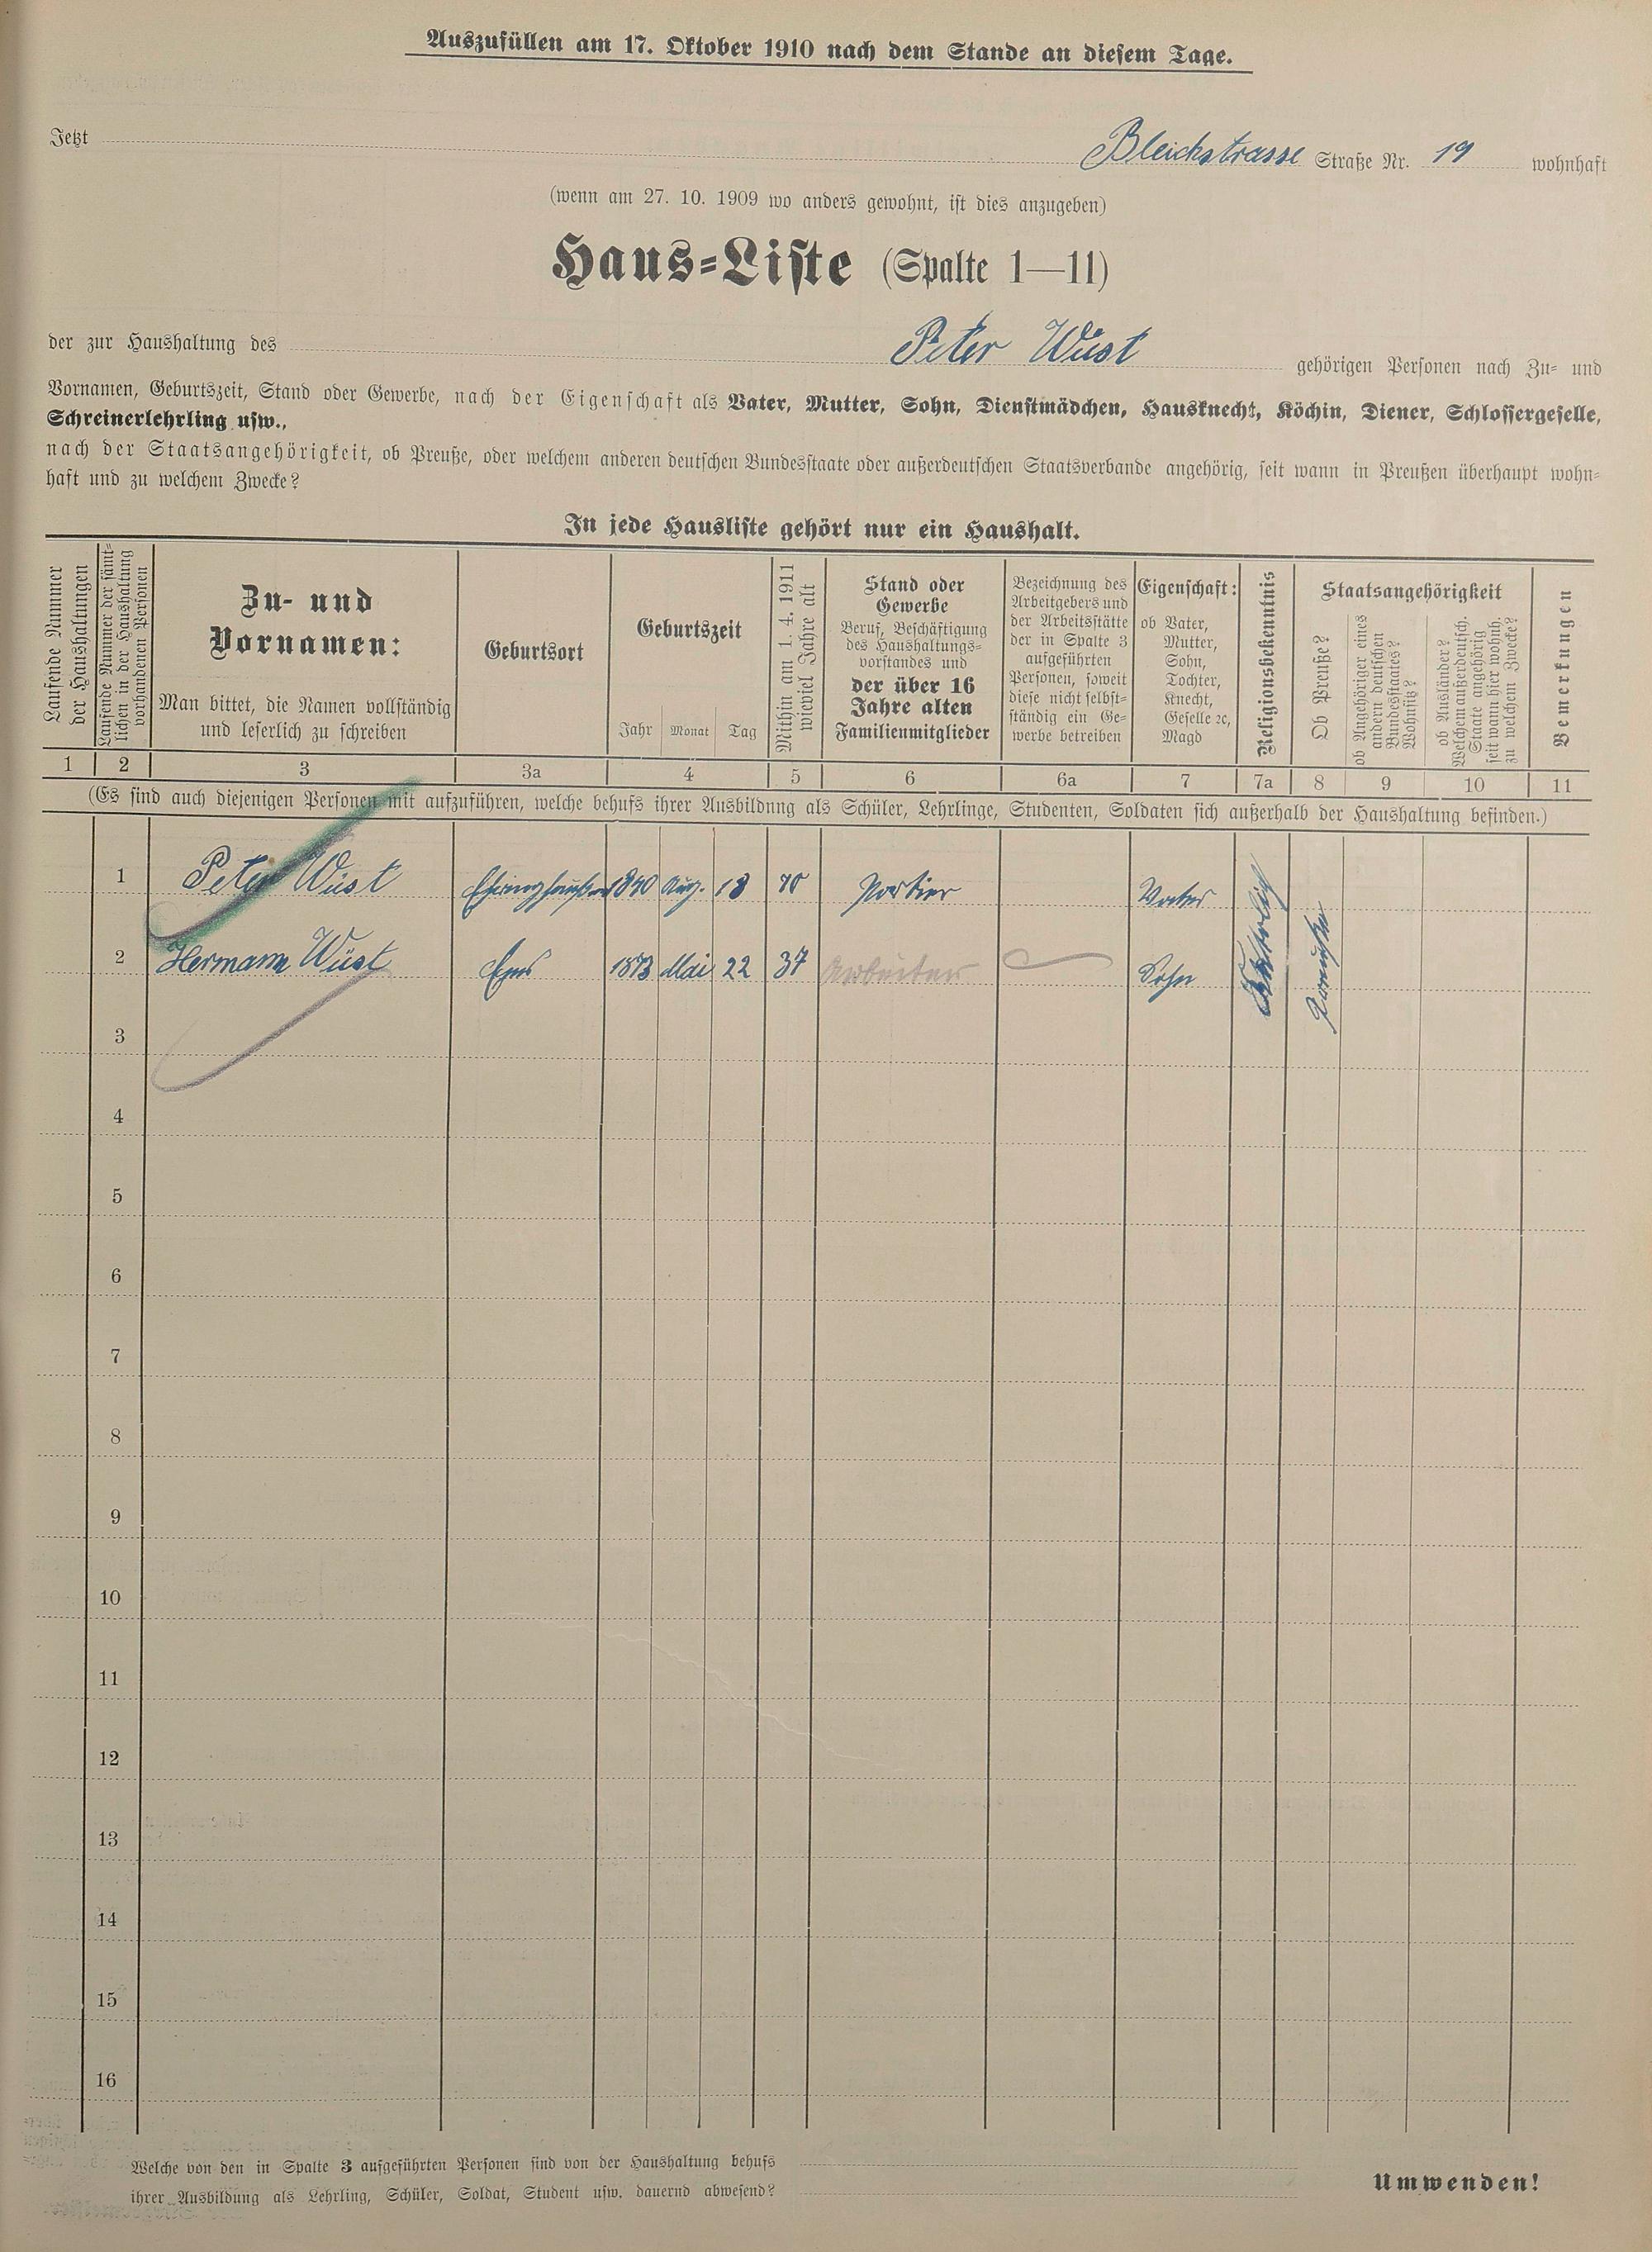 Auszufüllen am 17. Oktober 1910 nach dem Stande an diesem Tage.
Jetzt Bleichstrasse Straße Nr. 19 wohnhaft
(wenn am 27. 10. 1909 wo anders gewohnt, ist dies anzugeben)
Haus-Liste (Spalte 1—11)
der zur Haushaltung des Peter Wüst gehörigen Personen nach Zu- und
Vornamen, Geburtszeit, Stand oder Gewerbe, nach der Eigenschaft als Vater, Mutter, Sohn, Dienstmädchen, Hausknecht, Köchin, Diener, Schlossergeselle,
Schreinerlehrling usw.,
nach der Staatsangehörigkeit, ob Preuße, oder welchem anderen deutschen Bundesstaate oder außerdeutschen Staatsverbande angehörig, seit wann in Preußen überhaupt wohn-
haft und zu welchem Zwecke?
In jede Hausliste gehört nur ein Haushalt.
Laufende Nummer
der Haushaltungen
Laufende Nummer der sämt-
lichen in der Haushaltung
vorhandenen Personen
Zu- und
Vornamen:
Man bittet, die Namen vollständig
und leserlich zu schreiben
Geburtsort
Geburtszeit
Jahr Monat Tag
Mithin am 1. 4. 1911
wieviel Jahre alt
Stand oder
Gewerbe
Beruf, Beschäftigung
des Haushaltungs-
vorstandes und
der über 16
Jahre alten
Familienmitglieder
Bezeichnung des
Arbeitgebers und
der Arbeitsstätte
der in Spalte 3
aufgeführten
Personen, soweit
diese nicht selbst-
ständig ein Ge-
werbe betreiben
Eigenschaft:
ob Vater,
Mutter,
Sohn,
Tochter,
Knecht,
Geselle ꝛc,
Magd
Religionsbekenntnis
Staatsangehörigkeit
Ob Preuße?
ob Angehöriger eines
andern deutschen
Bundesstaates?
Wohnsitz?
ob Ausländer?
Welchem außerdeutsch.
Staate angehörig
seit wann hier wohnh.
zu welchem Zwecke?
Bemerkungen
1 2 3 3a 4 5 6 6a 7 7a 8 9 10 11
(Es sind auch diejenigen Personen mit aufzuführen, welche behufs ihrer Ausbildung als Schüler, Lehrlinge, Studenten, Soldaten sich außerhalb der Haushaltung befinden.)
1 Peter Wüst 1840 Aug. 18 70 Portier Vater
2 Hermann Wüst Ems 1873 Mai 22 37 Arbeiter Sohn
Katholisch
Preuße
3
4
5
6
7
8
9
10
11
12
13
14
15
16
Welche von den in Spalte 3 aufgeführten Personen sind von der Haushaltung behufs
ihrer Ausbildung als Lehrling, Schüler, Soldat, Student usw. dauernd abwesend?
Umwenden!